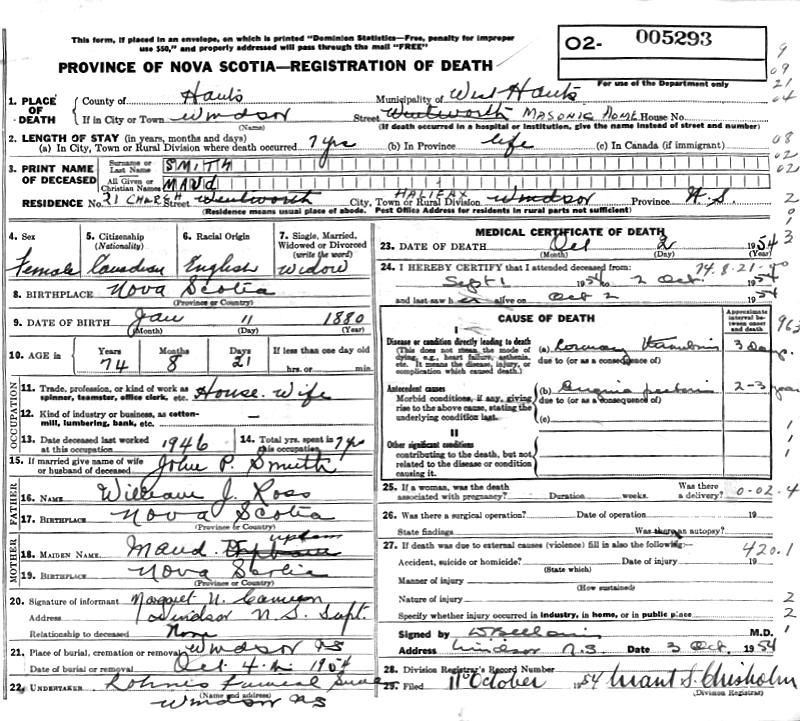 This form, if placed in an envelope, on which is printed "Dominion Statistics—Free, penalty for improper
use $50," and properly addressed will pass through the mail "FREE"
PROVINCE OF NOVA SCOTIA—REGISTRATION OF DEATH
O2- 005293
For use of the Department only
9
09
21
04
1. PLACE OF DEATH
County of Hants Municipality of West Hants
If in City or Town Windsor Street Wentworth MASONIC HOME House No.
(Name) (If death occurred in a hospital or institution, give the name instead of street and number)
2. LENGTH OF STAY (in years, months and days)
(a) In City, Town or Rural Division where death occurred 7 yrs (b) In Province life (c) In Canada (if immigrant)
08
02
02
3. PRINT NAME OF DECEASED
Surname or Last Name SMITH
All Given or Christian Names MAUD
RESIDENCE No. 21 CHURCH Street Wentworth City, Town or Rural Division HALIFAX Windsor Province N.S.
(Residence means usual place of abode. Post Office Address for residents in rural parts not sufficient)
2
0
1
3
4. Sex Female
5. Citizenship (Nationality) Canadian
6. Racial Origin English
7. Single, Married, Widowed or Divorced (write the word) Widow
8. BIRTHPLACE Nova Scotia
(Province or Country)
9. DATE OF BIRTH Jan 11 1880
(Month) (Day) (Year)
10. AGE in Years 74 Months 8 Days 21 If less than one day old hrs. or min.
OCCUPATION
11. Trade, profession, or kind of work as spinner, teamster, office clerk, etc. House Wife
12. Kind of industry or business, as cotton-mill, lumbering, bank, etc. —
13. Date deceased last worked at this occupation 1946
14. Total yrs. spent in this occupation
15. If married give name of wife or husband of deceased John P. Smith
FATHER
16. NAME William J. Ross
17. BIRTHPLACE Nova Scotia
(Province or Country)
MOTHER
18. MAIDEN NAME Maud Upham
19. BIRTHPLACE Nova Scotia
(Province or Country)
20. Signature of informant Margaret N. Cameron
Address Windsor N.S. Supt.
Relationship to deceased None
21. Place of burial, cremation or removal Windsor NS
Date of burial or removal Oct 4th 1954
22. UNDERTAKER Funeral
(Name and address)
Windsor NS
MEDICAL CERTIFICATE OF DEATH
23. DATE OF DEATH Oct 2 1954
(Month) (Day) (Year)
24. I HEREBY CERTIFY that I attended deceased from: 74.8.21
Sept 1 1954 to 2 Oct. 1954
and last saw her alive on Oct 2 1954
CAUSE OF DEATH
Approximate interval between onset and death
963
I
Disease or condition directly leading to death
(This does not mean the mode of dying, e.g., heart failure, asthenia, etc. It means the disease, injury, or complication which caused death.)
(a) Coronary thrombosis 3 days
due to (or as a consequence of)
Antecedent causes
Morbid conditions, if any, giving rise to the above cause, stating the underlying condition last.
(b) Angina pectoris 2-3 years
due to (or as a consequence of)
(c)
II
Other significant conditions
contributing to the death, but not related to the disease or condition causing it.
1
1
1
25. If a woman, was the death associated with pregnancy? Duration weeks. Was there a delivery? 0-02.4
26. Was there a surgical operation? Date of operation 19
State findings Was there an autopsy?
27. If death was due to external causes (violence) fill in also the following:— 420.1
Accident, suicide or homicide? Date of injury 19
(State which)
Manner of injury
(How sustained)
Nature of injury 2
Specify whether injury occurred in industry, in home, or in public place 2
Signed by M.D. 1
Address Windsor N.S. Date 3 Oct. 1954
28. Division Registrar's Record Number
29. Filed 11 October 1954 Grant S. Chisholm
(Division Registrar)